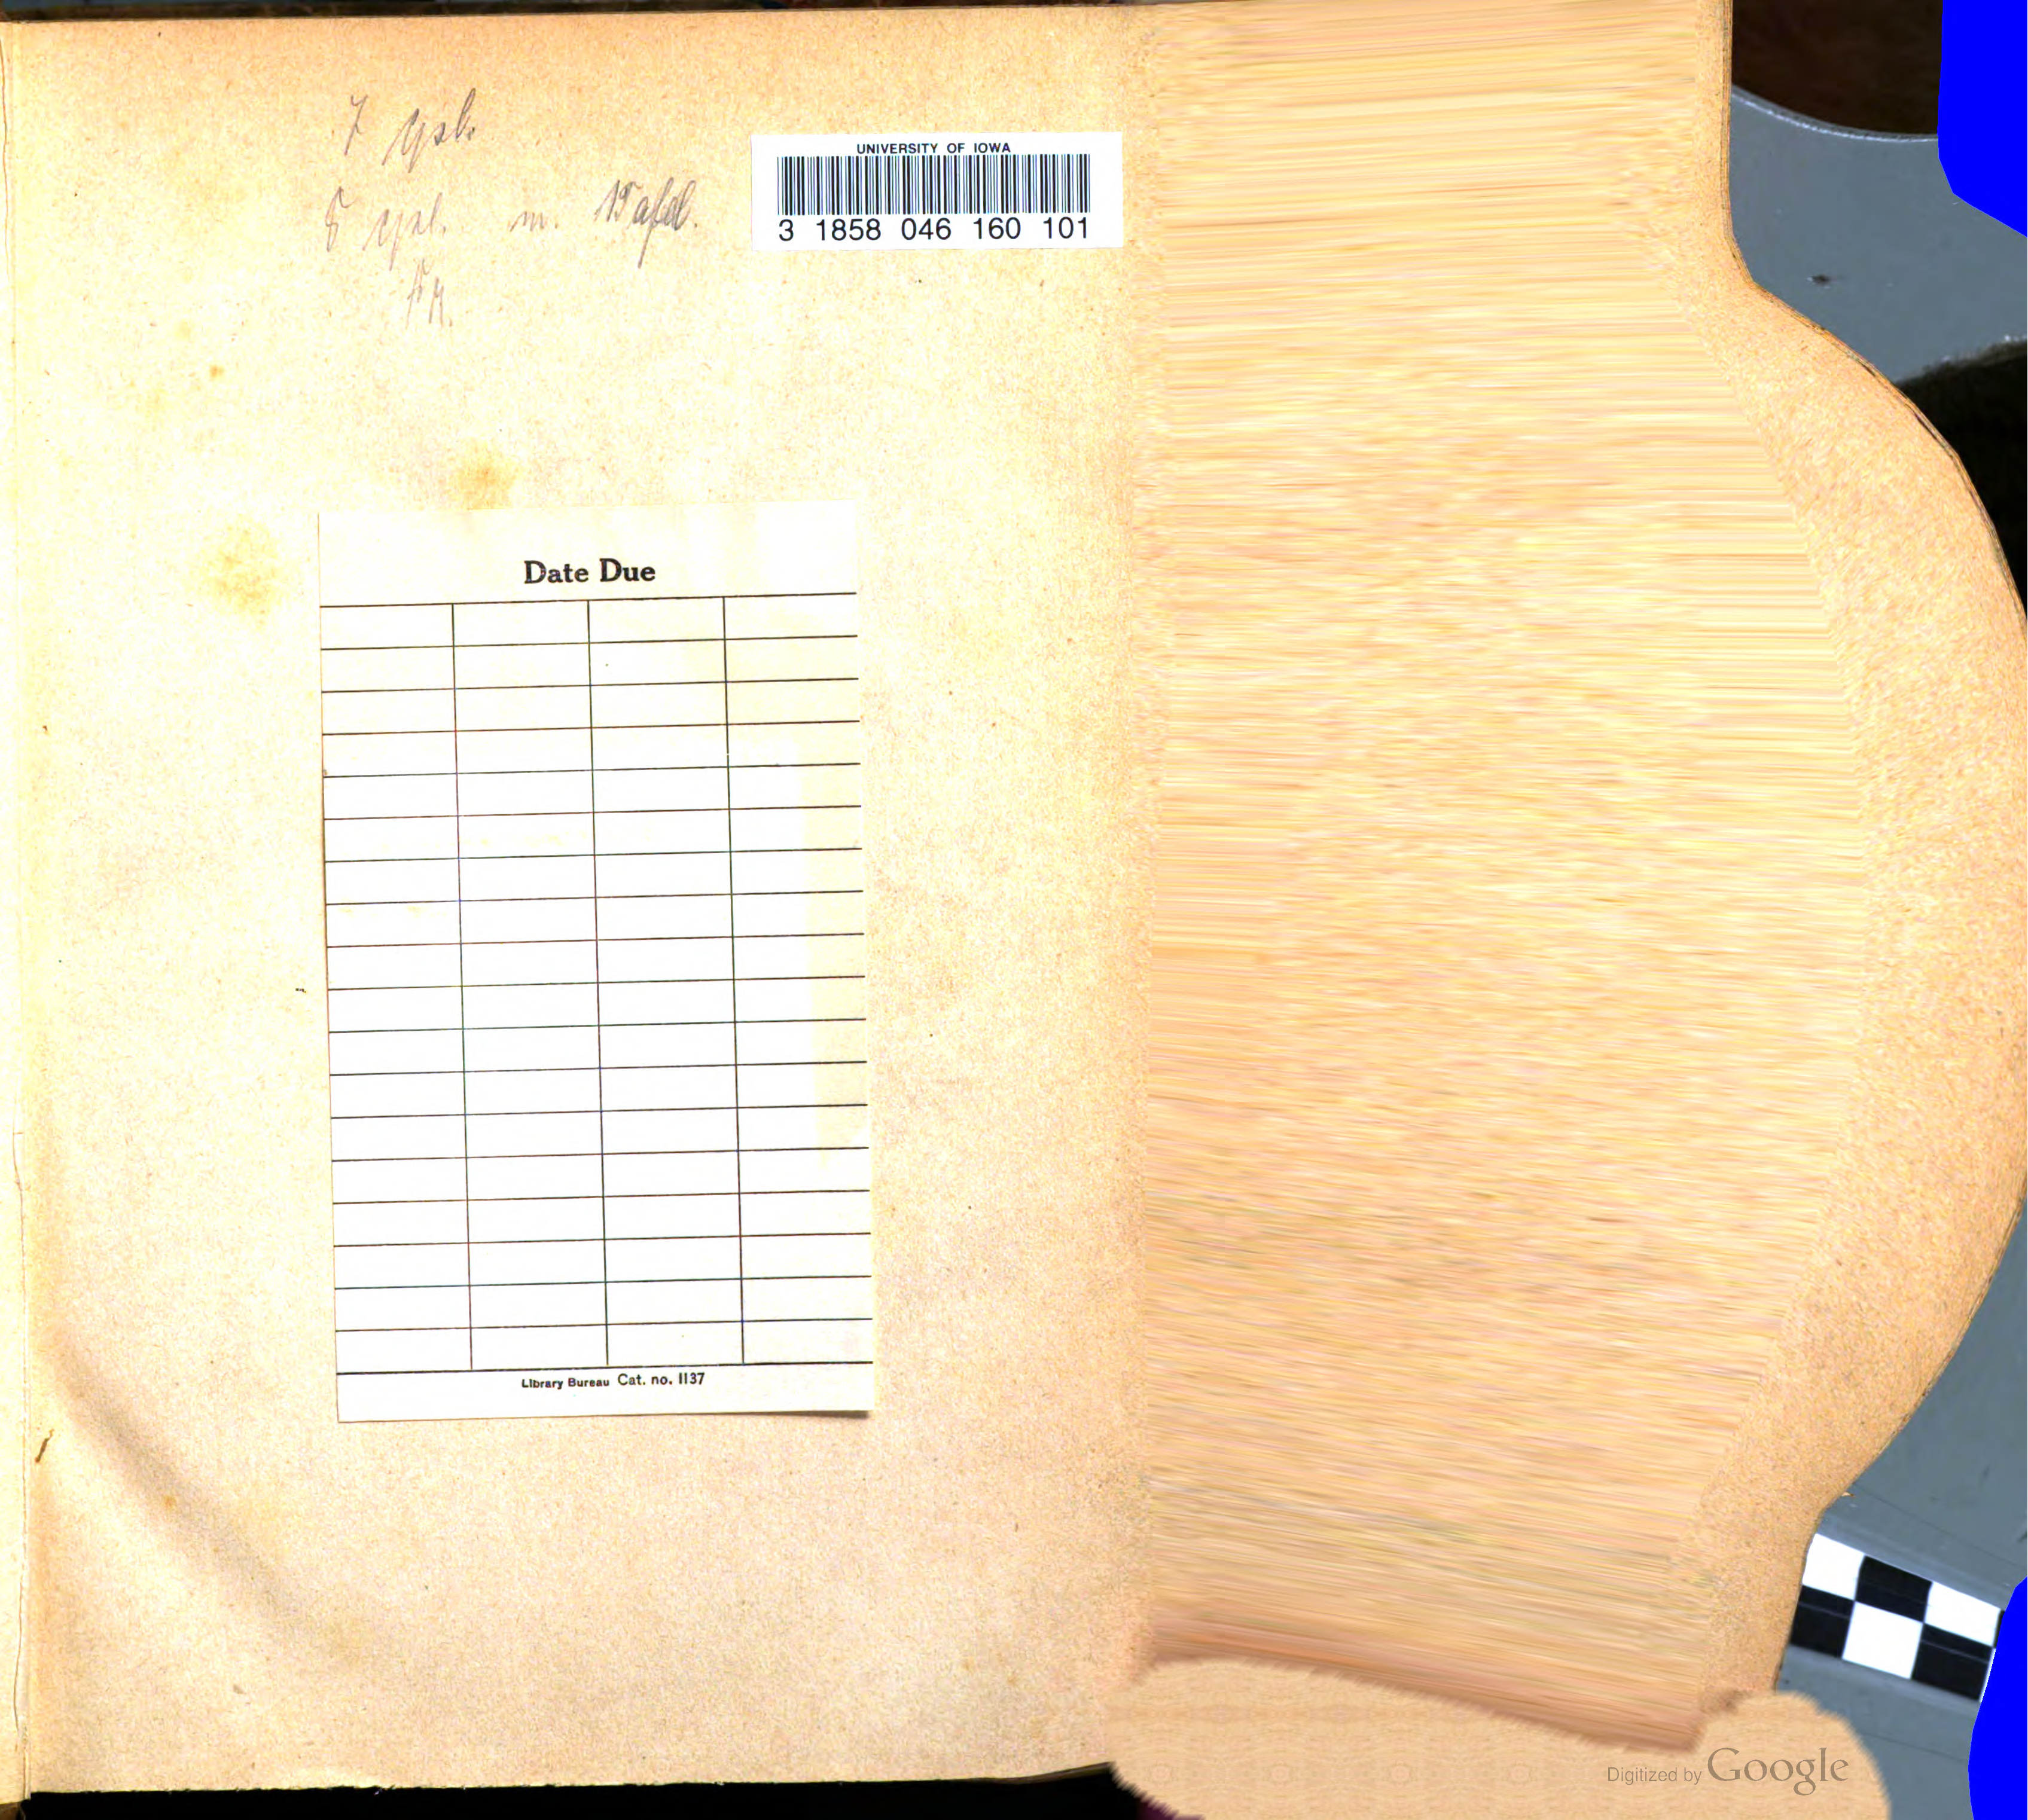 7
m.
UNIVERSITY OF IOWA
3 1858 046 160 101
Date Due
Library Bureau Cat. no. 1137
Digitized by Google